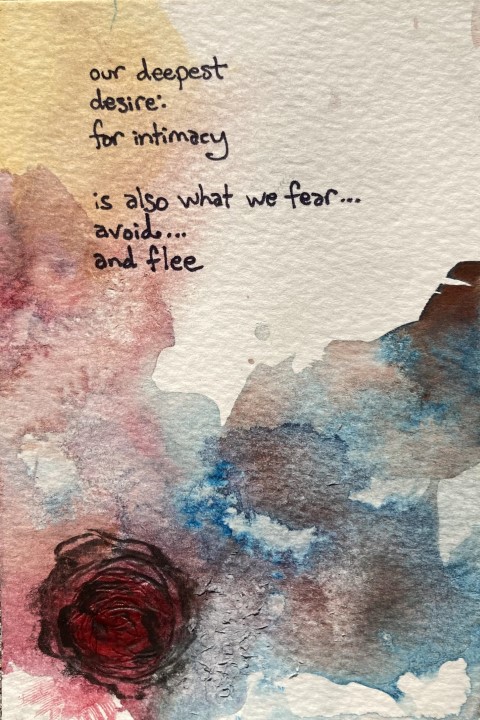 our deepest
desire:
for intimacy
is also what we fear...
avoid...
and flee